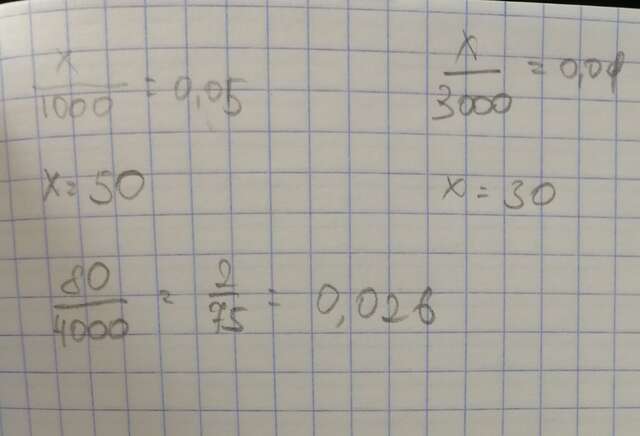 x/1000 = 0,05
x/3000 = 0,01
x = 50
x = 30
80/4000 = 2/75 = 0,026